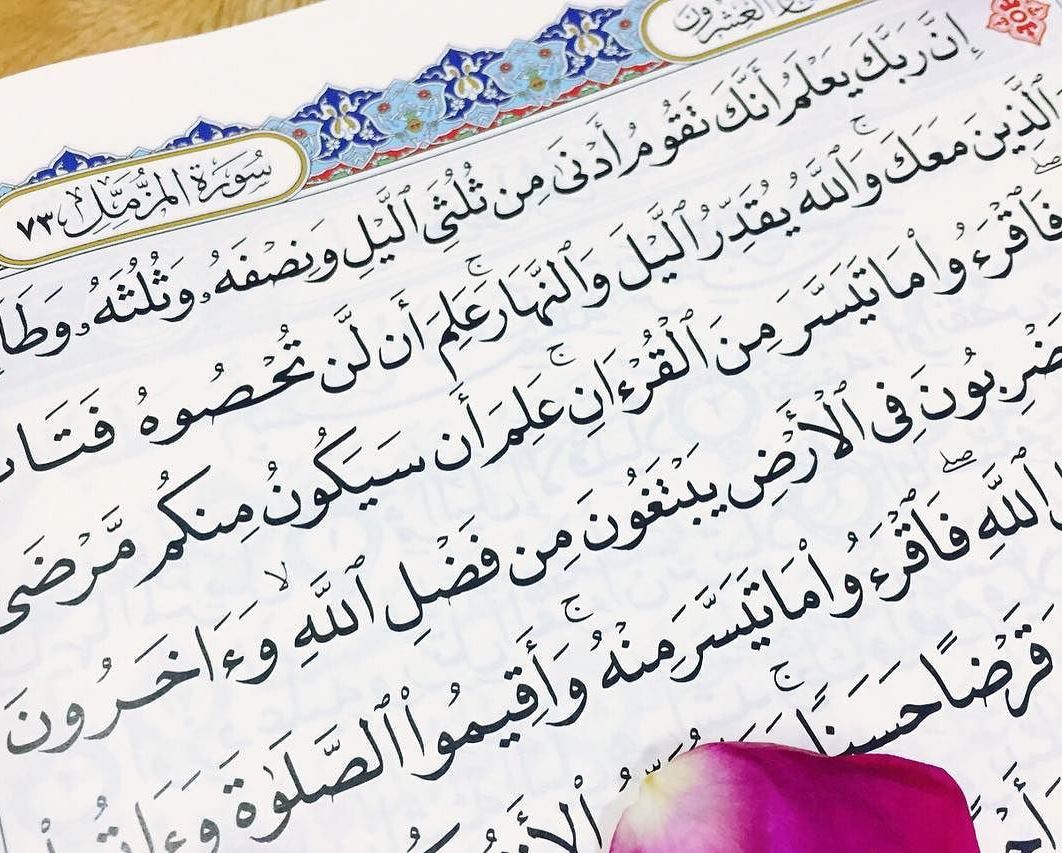 العشرون
سُورَةُ المُزَّمِّل ٧٣
إِنَّ رَبَّكَ يَعْلَمُ أَنَّكَ تَقُومُ أَدْنَىٰ مِن ثُلُثَىِ ٱلَّيْلِ وَنِصْفَهُۥ وَثُلُثَهُۥ
ٱلَّذِينَ مَعَكَ ۚ وَٱللَّهُ يُقَدِّرُ ٱلَّيْلَ وَٱلنَّهَارَ ۚ عَلِمَ أَن لَّن تُحْصُوهُ
فَٱقْرَءُوا۟ مَا تَيَسَّرَ مِنَ ٱلْقُرْءَانِ ۚ عَلِمَ أَن سَيَكُونُ مِنكُم مَّرْضَىٰ
فِى ٱلْأَرْضِ يَبْتَغُونَ مِن فَضْلِ ٱللَّهِ ۙ وَءَاخَرُونَ
ٱللَّهِ ۖ فَٱقْرَءُوا۟ مَا تَيَسَّرَ مِنْهُ ۚ وَأَقِيمُوا۟ ٱلصَّلَوٰةَ
قَرْضًا حَسَنًا ۚ